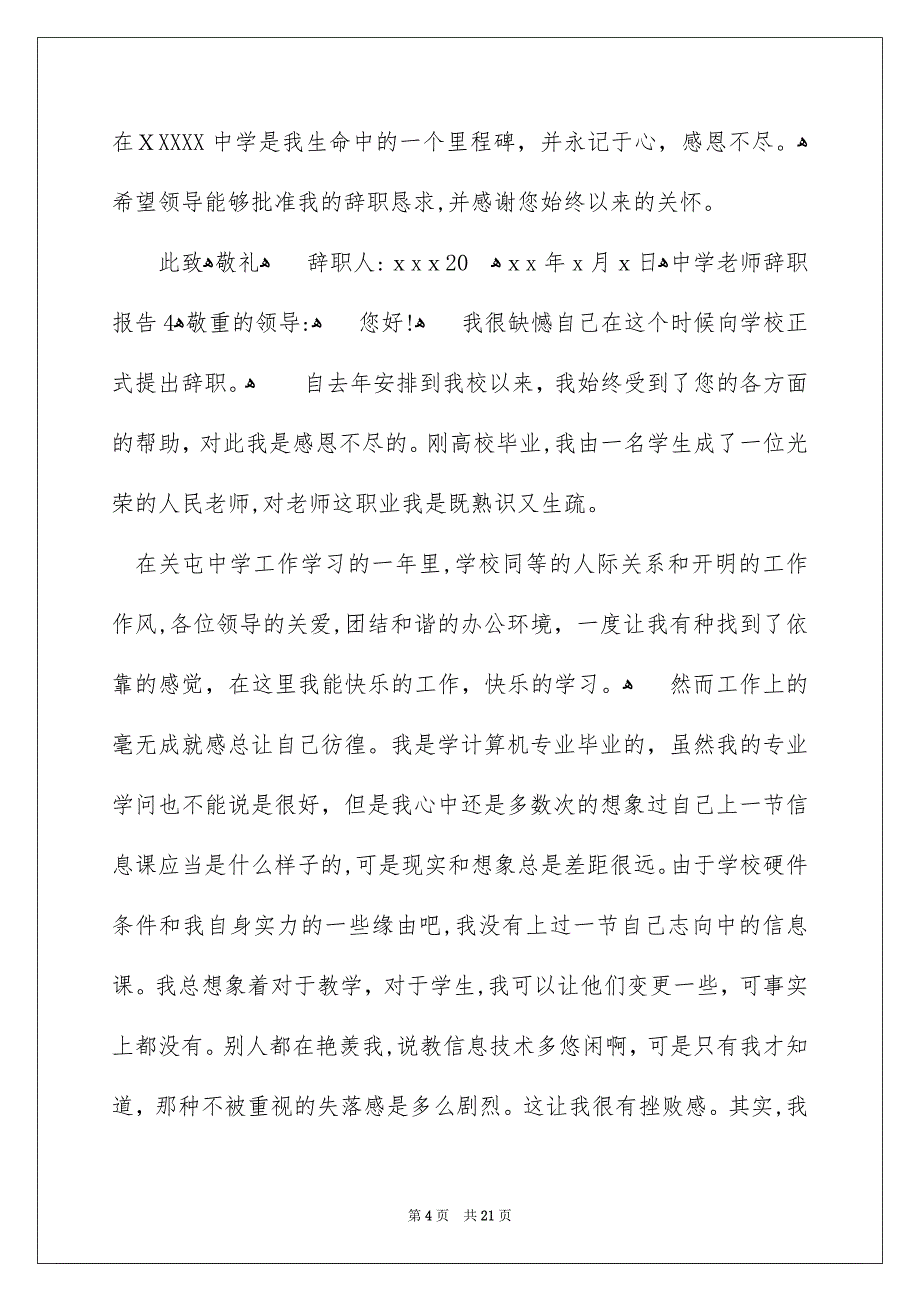 在XXXXX中学是我生命中的一个里程碑，并永记于心，感恩不尽。ﻫ
希望领导能够批准我的辞职恳求,并感谢您始终以来的关怀。
此致ﻫ敬礼ﻫ 辞职人: xxx20 ﻫxx年x月x日ﻫ中学老师辞职
报告 4ﻫ敬重的领导:ﻫ 您好!ﻫ 我很缺憾自己在这个时候向学校正
式提出辞职。ﻫ 自去年安排到我校以来，我始终受到了您的各方面
的帮助，对此我是感恩不尽的。刚高校毕业,我由一名学生成了一位光
荣的人民老师,对老师这职业我是既熟识又生疏。
在关屯中学工作学习的一年里,学校同等的人际关系和开明的工作
作风,各位领导的关爱,团结和谐的办公环境，一度让我有种找到了依
靠的感觉，在这里我能快乐的工作，快乐的学习。ﻫ 然而工作上的
毫无成就感总让自己彷徨。我是学计算机专业毕业的，虽然我的专业
学问也不能说是很好，但是我心中还是多数次的想象过自己上一节信
息课应当是什么样子的,可是现实和想象总是差距很远。由于学校硬件
条件和我自身实力的一些缘由吧,我没有上过一节自己志向中的信息
课。我总想象着对于教学，对于学生,我可以让他们变更一些，可事实
上都没有。别人都在艳羡我,说教信息技术多悠闲啊，可是只有我才知
道，那种不被重视的失落感是多么剧烈。这让我很有挫败感。其实,我
第 4 页 共 21 页